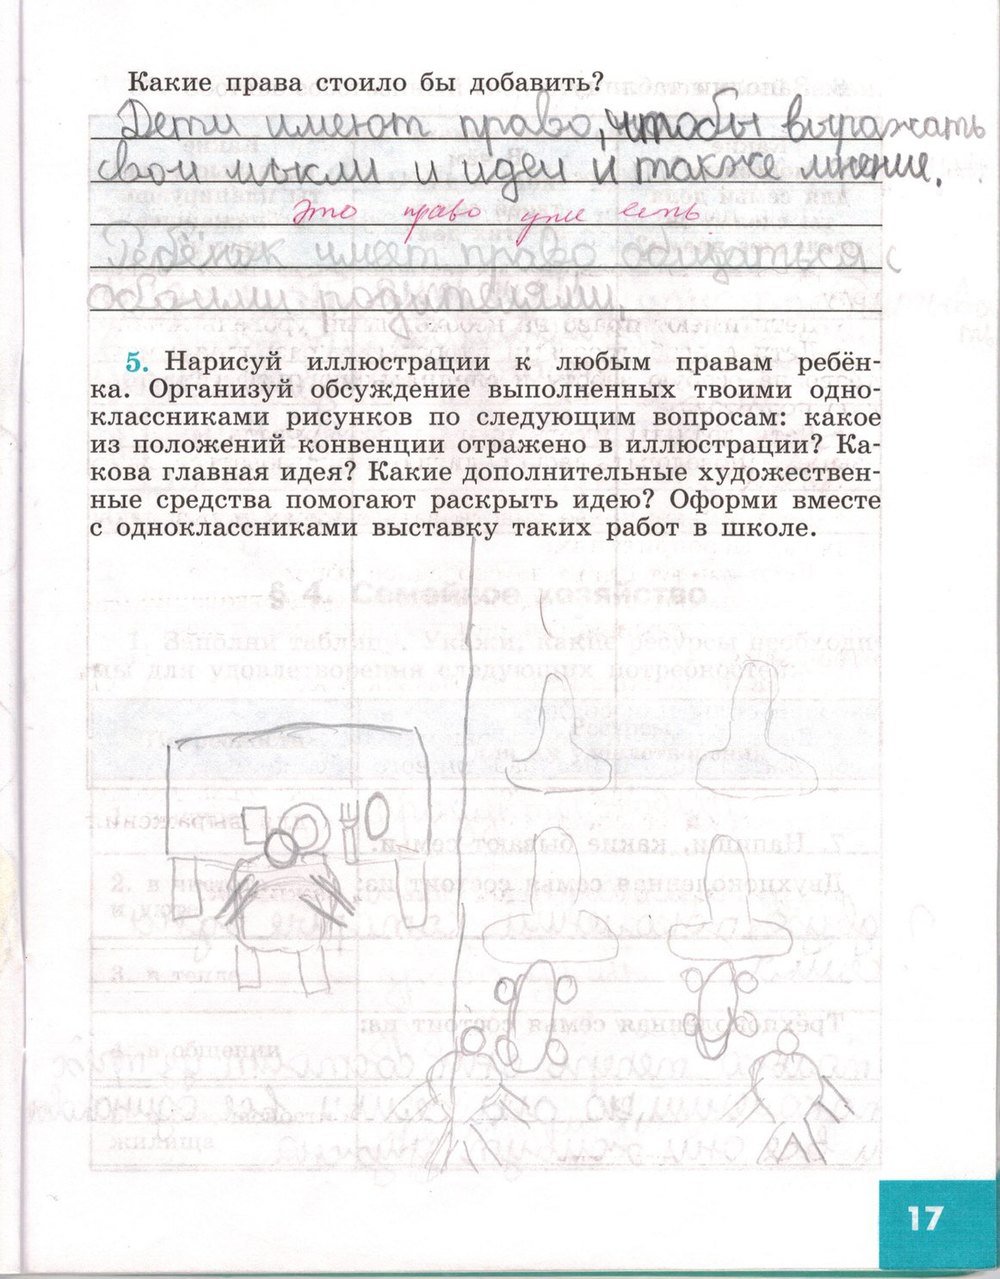 Какие права стоило бы добавить?
Дети имеют право, чтобы выражать
свои мысли и идеи и также мнение.
это право уже есть
Ребёнок имеет право общаться с
обоими родителями.
5. Нарисуй иллюстрации к любым правам ребён-
ка. Организуй обсуждение выполненных твоими одно-
классниками рисунков по следующим вопросам: какое
из положений конвенции отражено в иллюстрации? Ка-
кова главная идея? Какие дополнительные художествен-
ные средства помогают раскрыть идею? Оформи вместе
с одноклассниками выставку таких работ в школе.
17